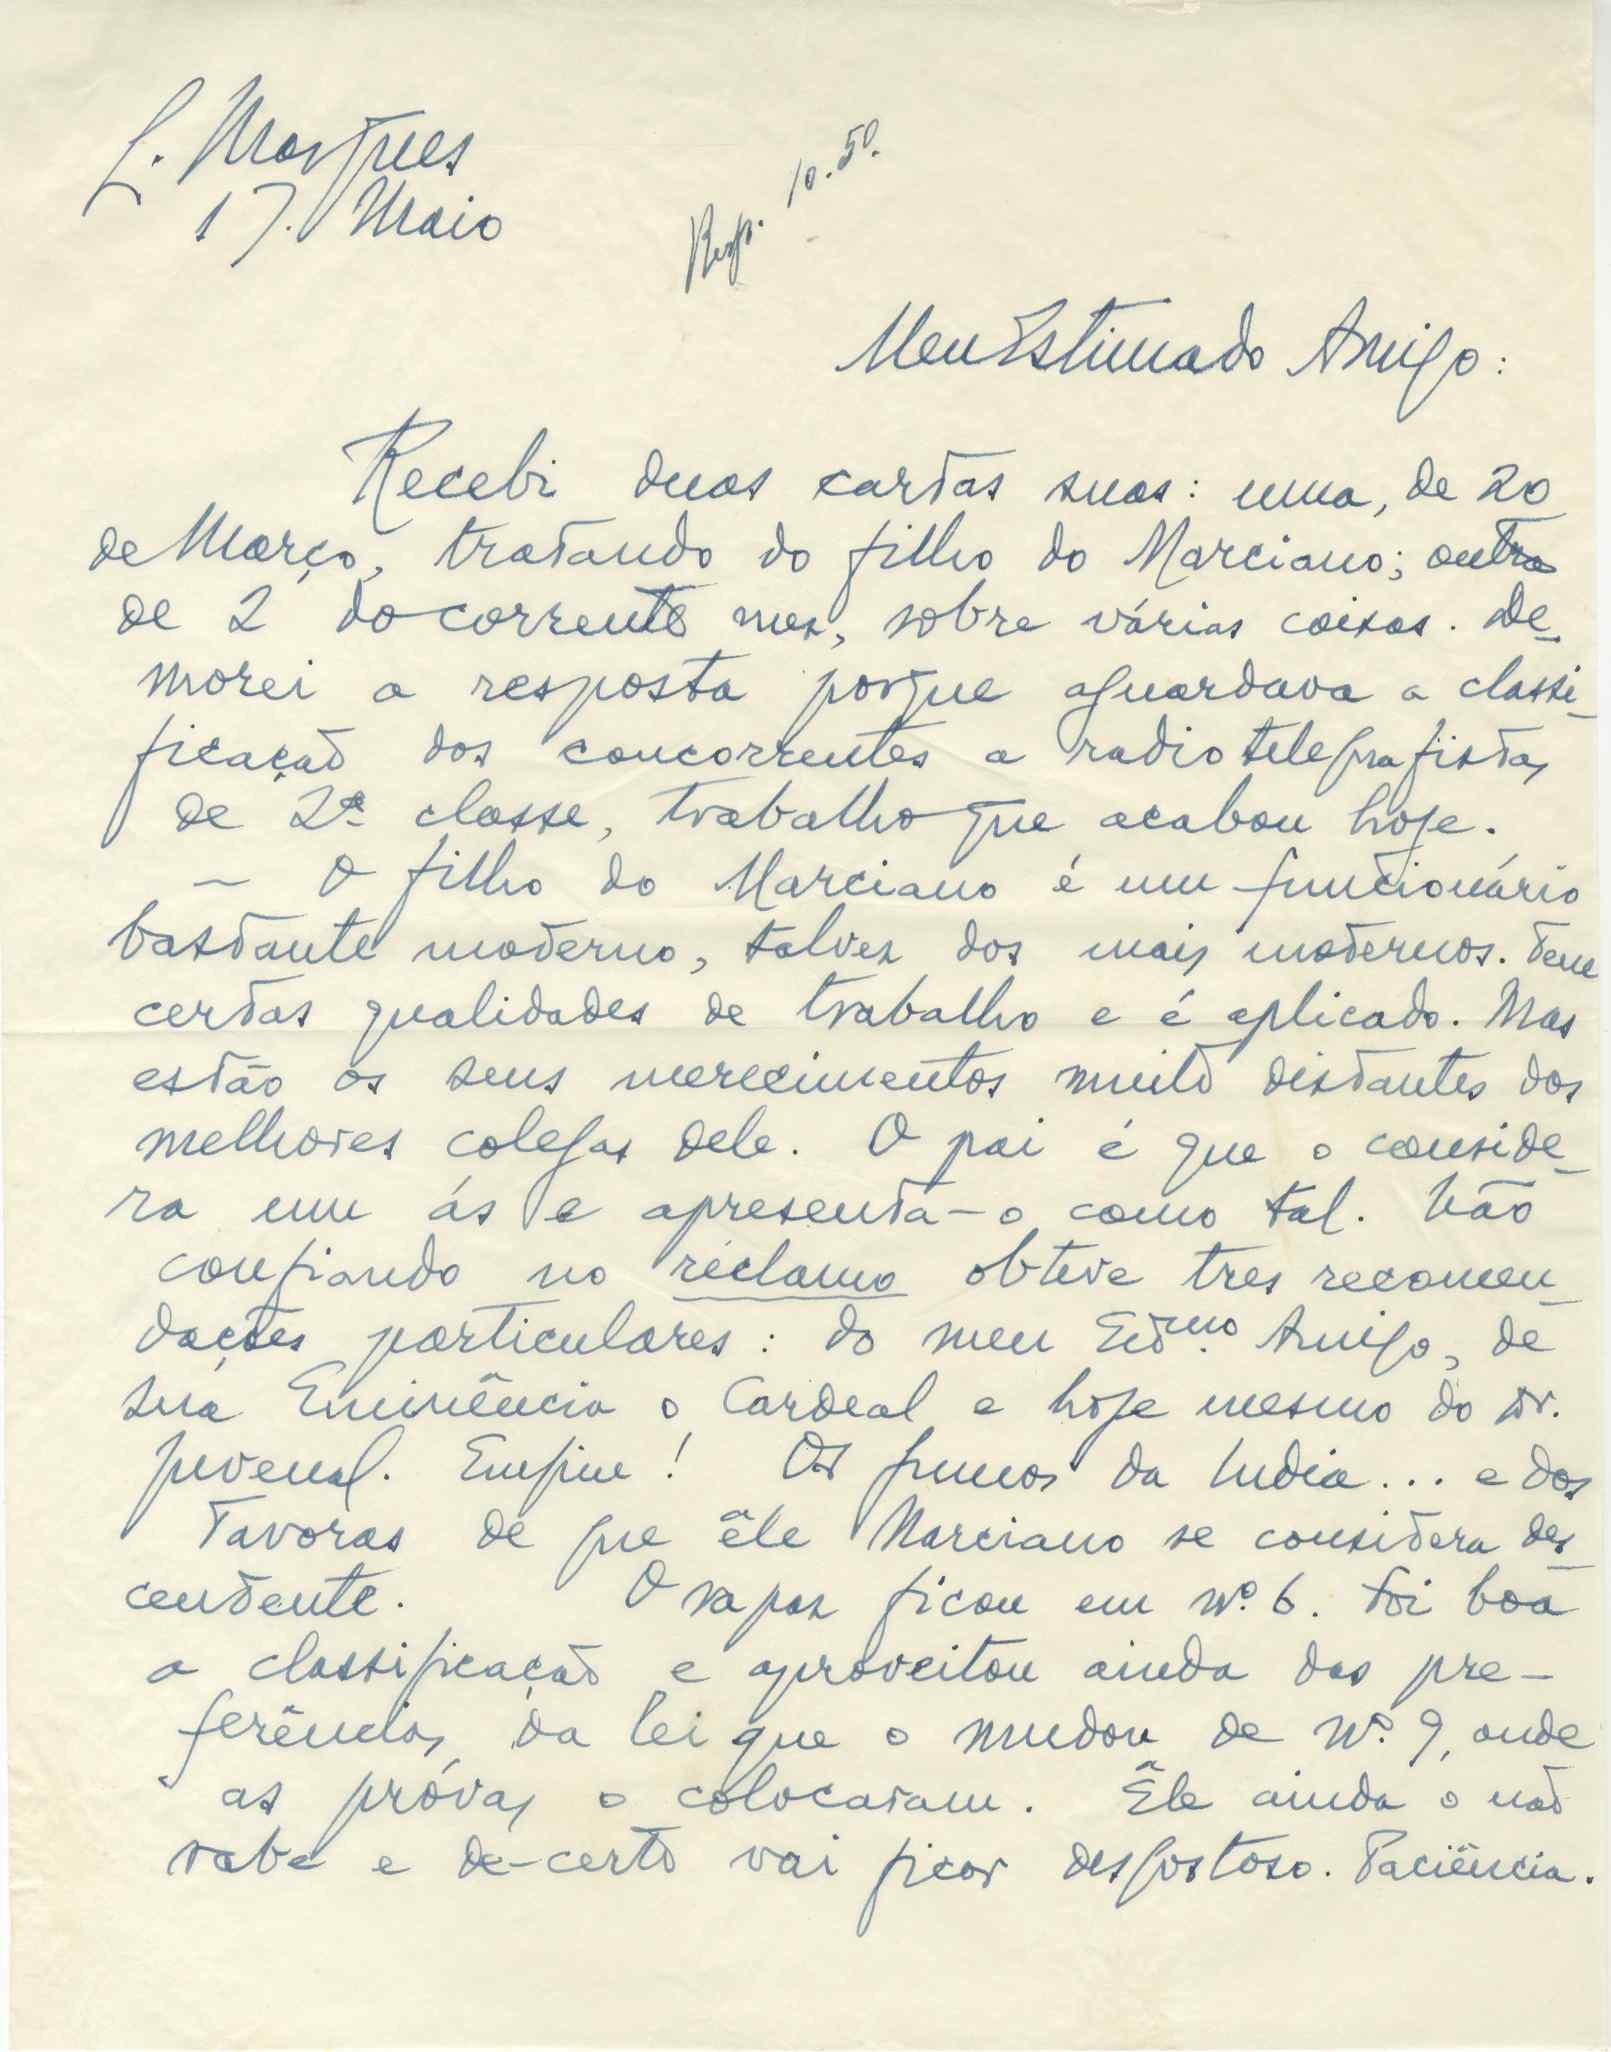 L. Marques
17. Maio
Resp. 10.50.
Meu Estimado Amigo:
Recebi duas cartas suas: uma, de 20
de Março, tratando do filho do Marciano; outra
de 2 do corrente mez, sobre várias coisas. De-
morei a resposta porque aguardava a classi-
ficação dos concorrentes a radiotelegrafistas
de 2ª classe, trabalho que acabou hoje.
– O filho do Marciano é um funcionário
bastante moderno, talvez dos mais modernos. Tem
certas qualidades de trabalho e é aplicado. Mas
estão os seus merecimentos muito distantes dos
melhores colegas dele. O pai é que o conside-
ra um ás e apresenta-o como tal. Não
confiando no réclamo obteve tres recomen-
dações particulares: do meu Estmo. Amigo, de
Sua Eminência o Cardeal e hoje mesmo do Dr.
Juvenal. Emfim! Os fumos da India... e dos
Tavoras de que êle Marciano se considera des-
cendente. O rapaz ficou em nº. 6. Foi boa
a classificação e aproveitou ainda das pre-
ferências da lei que o mudou de nº. 9, onde
as próvas o colocaram. Êle ainda o não
sabe e de-certo vai ficar desgostoso. Paciência.